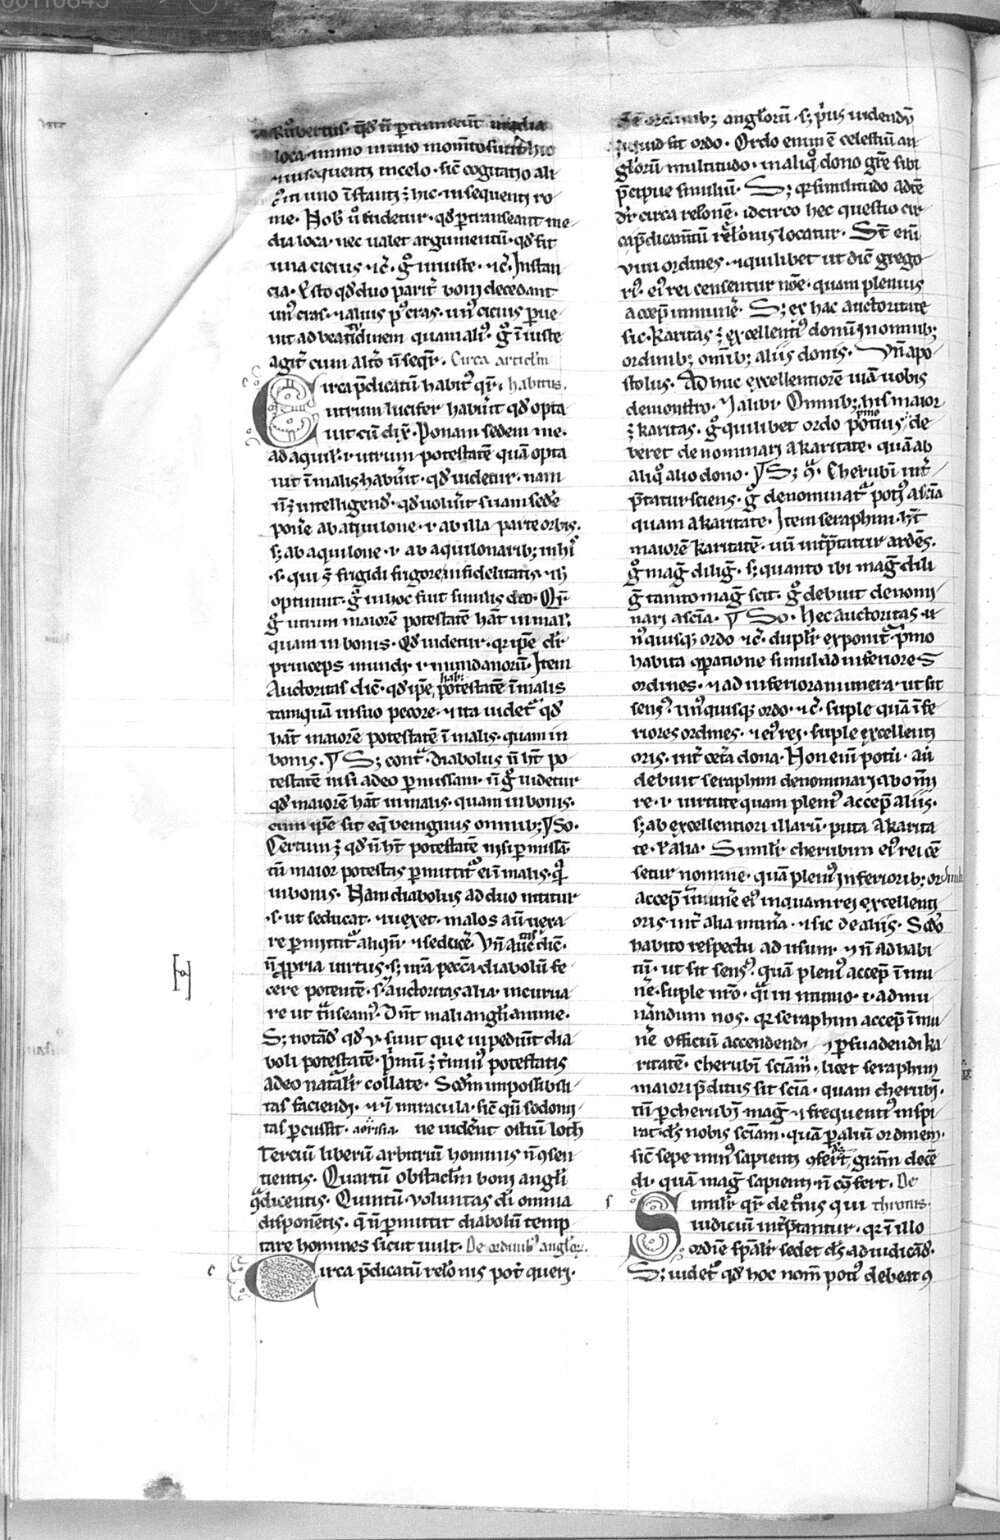 loca · immo uno momto sunt hic
· in sequenti in celo · sic̄ cogitatio ali
me · Nob̵ ū uidetur · qd̵ ptranseant me
dia loca · nec ualet argumentū · qd̵ sit
una cicius · ⁊c̄ · gͦ iniuste · ⁊c̄ · Instan
cia · Esto qd̵ duo parit̄ boni decedant
agit̄ cum alt̄o n̄ seqr̄ · Circa articlm̄
Circa p̄dicatū habit᷒ qr̄ · habitus ·
utrum lucifer habuit qd̵ opta
uit cū dix̄ · Ponam sedem me
ad aquil̄ · i · utrum potestatē quā opta
uit ī malis habuit · qd̵ uidetur · nam
n̄ ē intelligend̵ · qd̵ uoluit suam sedē
pon̄e ab aquilone · i · ab illa parte orbis ·
s; ab aquilone · i · ab aquilonarib; in hi᷒
· s · qui s̄t frigidi frigore infidelitatis · ⁊ h̄
optinuit · gͦ in hoc fuit similis deo · Qr̄
gͦ utrum maiorē potestatē hāt in mal᷒
quam in bonis · Qd̵ uidetur · qr ip̄e dr̄
princeps mundi · i · mundanorū · Item
Auctoritas dic̄ · qd̵ ip̄e hab; potestatē ī malis
tamquā in suo pecore · ⁊ ita uidet᷒ qd̵
hāt maiorē potestatē ī malis · quam in
bonis · ¶ S; cont᷒ · diabolus n̄ h̄t po
testatē nisi a deo pmissam · n̄ gͦ uidetur
qd̵ maiorē hāt in malis · quam in bonis ·
cum ip̄e sit eq̄ benignus omnib; ¶ So ·
Certum ē qd̵ n̄ h̄t potestatē nisi pmissā
tū maior potestas pmittit᷒ ei in malis · q̄
in bonis · Nam diabolus ad duo nititur
· s · ut seducat · ⁊ uexet · malos aū uexa
re pmittit᷒ aliqn̄ · ⁊ seducē · Vn̄ aug᷒ dic̄ ·
n̄ ppria uirtus · s; nr̄a pecc̄a diabolū fe
cēre potentē · s · auctoritas alia · incurua
re ut t̄nseam᷒ · Dn̄t mali angl̄i anime ·
S; notād̵ qd̵ · v · sunt que inpediūt dia
boli potestatē · p̄mū ē t̄min᷒ potestatis
a deo nat̄alr̄ collate · Scd̵m impossibili
tas faciendi · ⁊ ī miracula · sic̄ qn̄ sodomi
tas pcussit · aorisia · ne uidēnt ostiū loth
Terciū liberū arbitriū hominis n̄ ꝯsen
tientis · Quartū obstaclm̄ boni angl̄i
q̄dicentis · Quintū uoluntas di omnia
disponētis · q̄ n̄ pmittit diabolū temp
tare homines sicut uult · De ordinib᷒ anglor᷒ ·
c Circa p̄dicatū relōnis pot̄ queri ·
de ordinib; anglorū · s; p̄us uidendū
quid sit ordo · Ordo enim ē celestiū an
glorū multitudo · in aliq̄ dono gr̄e sibi
p̄cipue similiū · S; qr similitudo ad tē
dr̄ circa relōnē · idcirco hec questio cir
ca p̄dicam̄tū rel̄onis locatur · St̄ eni
viiii ordines · ⁊ quilibet ut dic̄ grego
ri᷒ · ei᷒ rei censentur nōe · quam plenius
accep̄ in munē · S; ex hac auctoritate
sic · Karitas ē excellenti᷒ donū in omnib;
ordinib; omīb; aliis donis · Vn̄ apo
stolus · Ad huc excellentiorē uiā uobis
demonstro · ⁊ alibi · Omnib; his maior
ē karitas · gͦ quilibet ordo pmo potius de
beret denominari a karitate · quā ab
aliq̄ alio dono · ¶ S; q̄ · Cherubī int̄
p̄tatur sciens · gͦ denominat᷒ poti᷒ a sc̄ia
quam a karitate · Item seraphin · h̄t
maiorē karitatē · un̄ int̄p̄tatur ardēs ·
gͦ maḡ diliḡ · s; quanto ibi maḡ dili
ḡ tanto maḡ scit · gͦ debuit denomi
nari a sc̄ia · ¶ So · Hec auctoritas · u
n᷒quisq; ordo ⁊c̄ · duplr̄ exponit᷒ p̄mo
habita ꝯparatione simul ad inferiores
ordines · ⁊ ad inferiora munera · ut sit
sens᷒ · un᷒quisq; ordo · ⁊c̄ · suple quā īfe
riores ordines · ⁊ ei᷒ rei · suple excellenti
oris · int̄ cet̄a dona · Non eni potū · aū
debuit seraphin denominari a bo
re · i · uirtute quam pleni᷒ accep̄ aliis ·
s; ab excellentiori illarū · puta a karita
te · ⁊ alia · Similr̄ cherubim ei᷒ rei cē
setur nomine · quā pleni᷒ inferiorib; ordinib;
accep̄ ī munē ei᷒ inquam rei excellenti
oris · int̄ alia munia · ⁊ sic de aliis · Scdo
habito respectu ad usum · ⁊ n̄ ad habi
tū · ut sit sens᷒ · quā pleni᷒ accep̄ ī mu
nē · suple nr̄o · qͣi in munio · i · ad mu
niandum nos · qr seraphim accep̄ ī mu
nē officiū accendendi · ⁊ psuadendi ka
ritatē · cherubī sciām · licet seraphin
maiori p̄ditus sit sciā · quam cherubī ·
tū p cherubī maḡ ⁊ frequenti᷒ inspi
rat ds̄ nobis sciam · quā p aliū ordinem ·
sic̄ sepe min᷒ sapienti ꝯfert gram docē
di · quā maḡ sapienti n̄ ꝯfert · De
s Similr̄ qr̄ de t̄onis qui thronis ·
iudiciū int̄p̄tantur · qr ī illo
ordīe sp̄alr̄ sedet ds̄ · ad iudicād̵ ·
S; uidet᷒ qd̵ hoc nom̄ poti᷒ debeat ꝯ